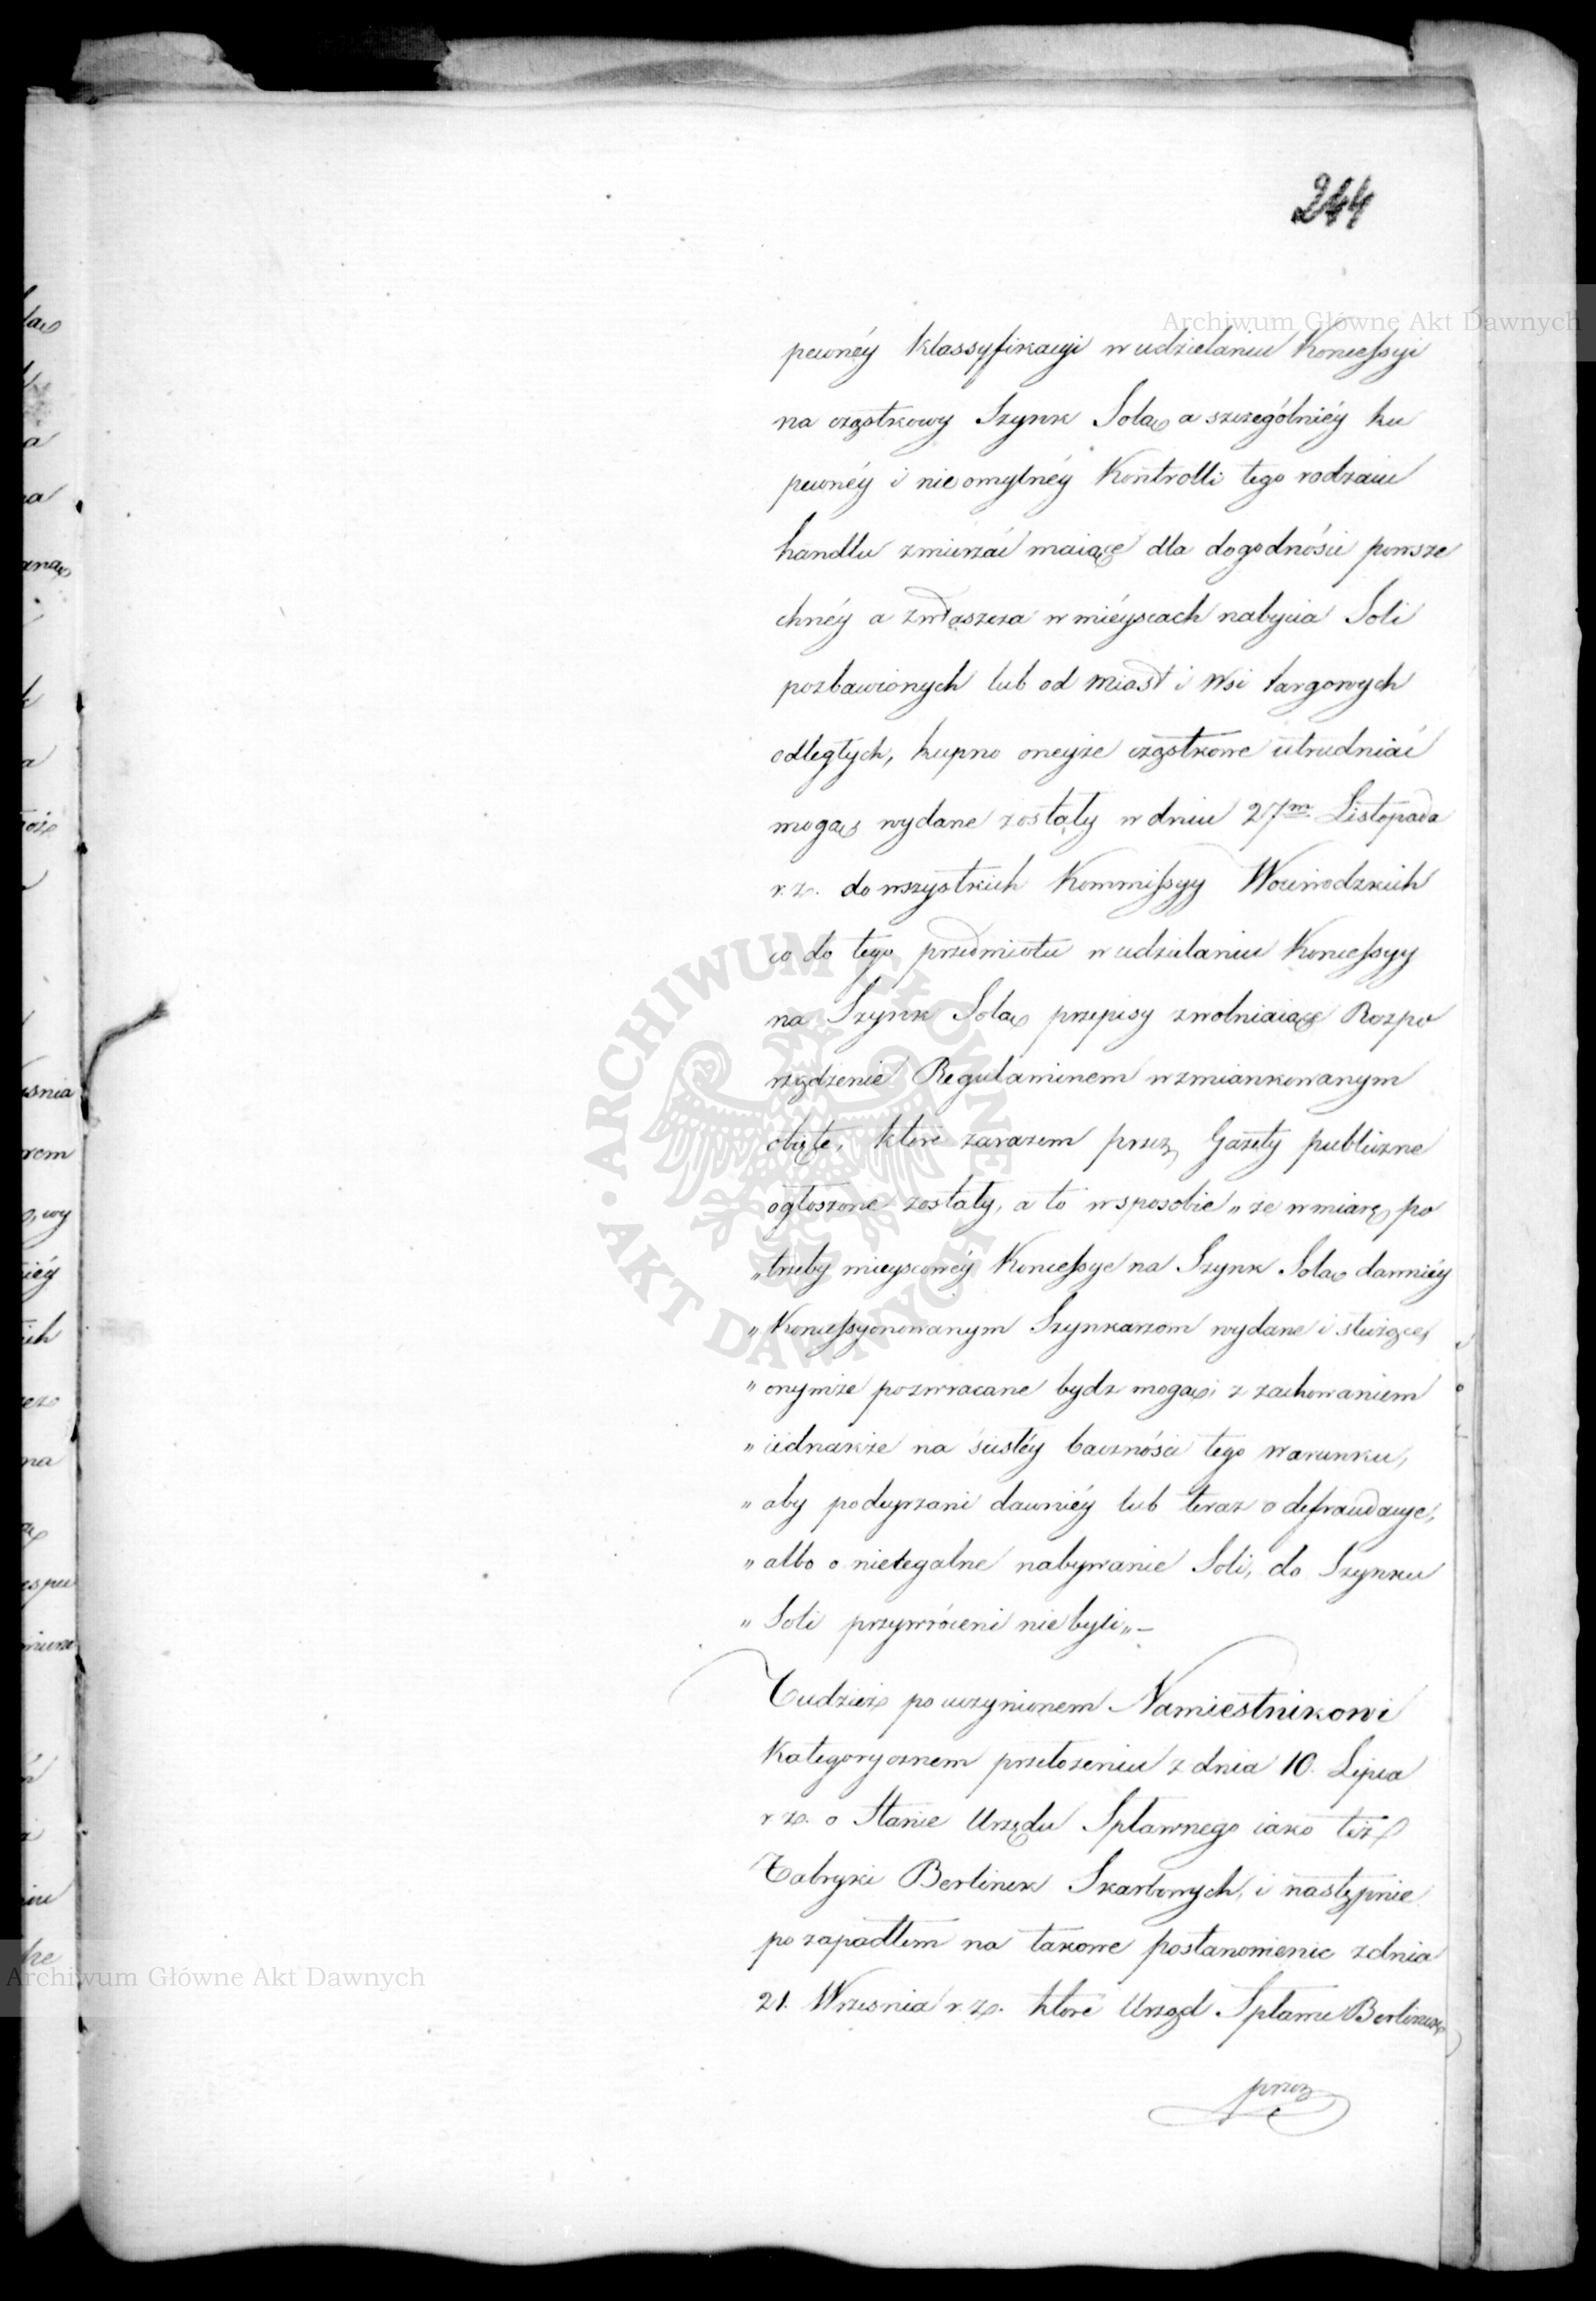 244
Archiwum Główne Akt Dawnych
pewnéy klassyfikacyi w udzielaniu Koncessyi
na cząstkowy Szynk Solą a szczególniéy ku
pewnéy i nieomylnéy Kontrolli tego rodzaiu
handlu zmierzać maiące dla dogodności powsze
chnéy a zwłaszcza w mieyscach nabycia Soli
pozbawionych lub od miast i Wsi targowych
odległych, kupno oneyże cząstkowe utrudniać
mogą, wydane zostały w dniu 27m. Listopada
r. z. do wszystkich Kommissyy Woiewodzkich
co do tego przedmiotu w udzielaniu Koncessyy
na Szynk Solą przepisy zwolniaiące Rozpo
rządzenie Regulaminem wzmiankowanym
obięte, które zarazem przez Gazety publiczne
ogłoszone zostały, a to w sposobie „ że w miarę po
„trzeby mieyscowéy Koncessye na Szynk Solą dawniéy
„ Koncessyonowanym Szynkarzom wydane i służące,
„ onymże pozwracane bydz mogą, z zachowaniem
„ iednakże na ścisłéy baczności tego warunku,
„ aby podeyrzani dawniéy lub teraz o defraudacye,
„ albo o nielegalne nabywanie Soli, do Szynku
„ Soli przywróceni nie byli „ –
Tudzież po uczynionem Namiestnikowi
Kategorycznem przełożeniu z dnia 10. Lipca
r. z. o Stanie Urzędu Spławnego iako też
Fabryki Berlinek Skarbowych, i następnie
po zapadłem na takowe postanowienie z dnia
21. Wrzesnia r. z. które Urząd Spławu Berlinką
przez
ARCHIWUM GŁÓWNE • AKT DAWNYCH •
Archiwum Główne Akt Dawnych